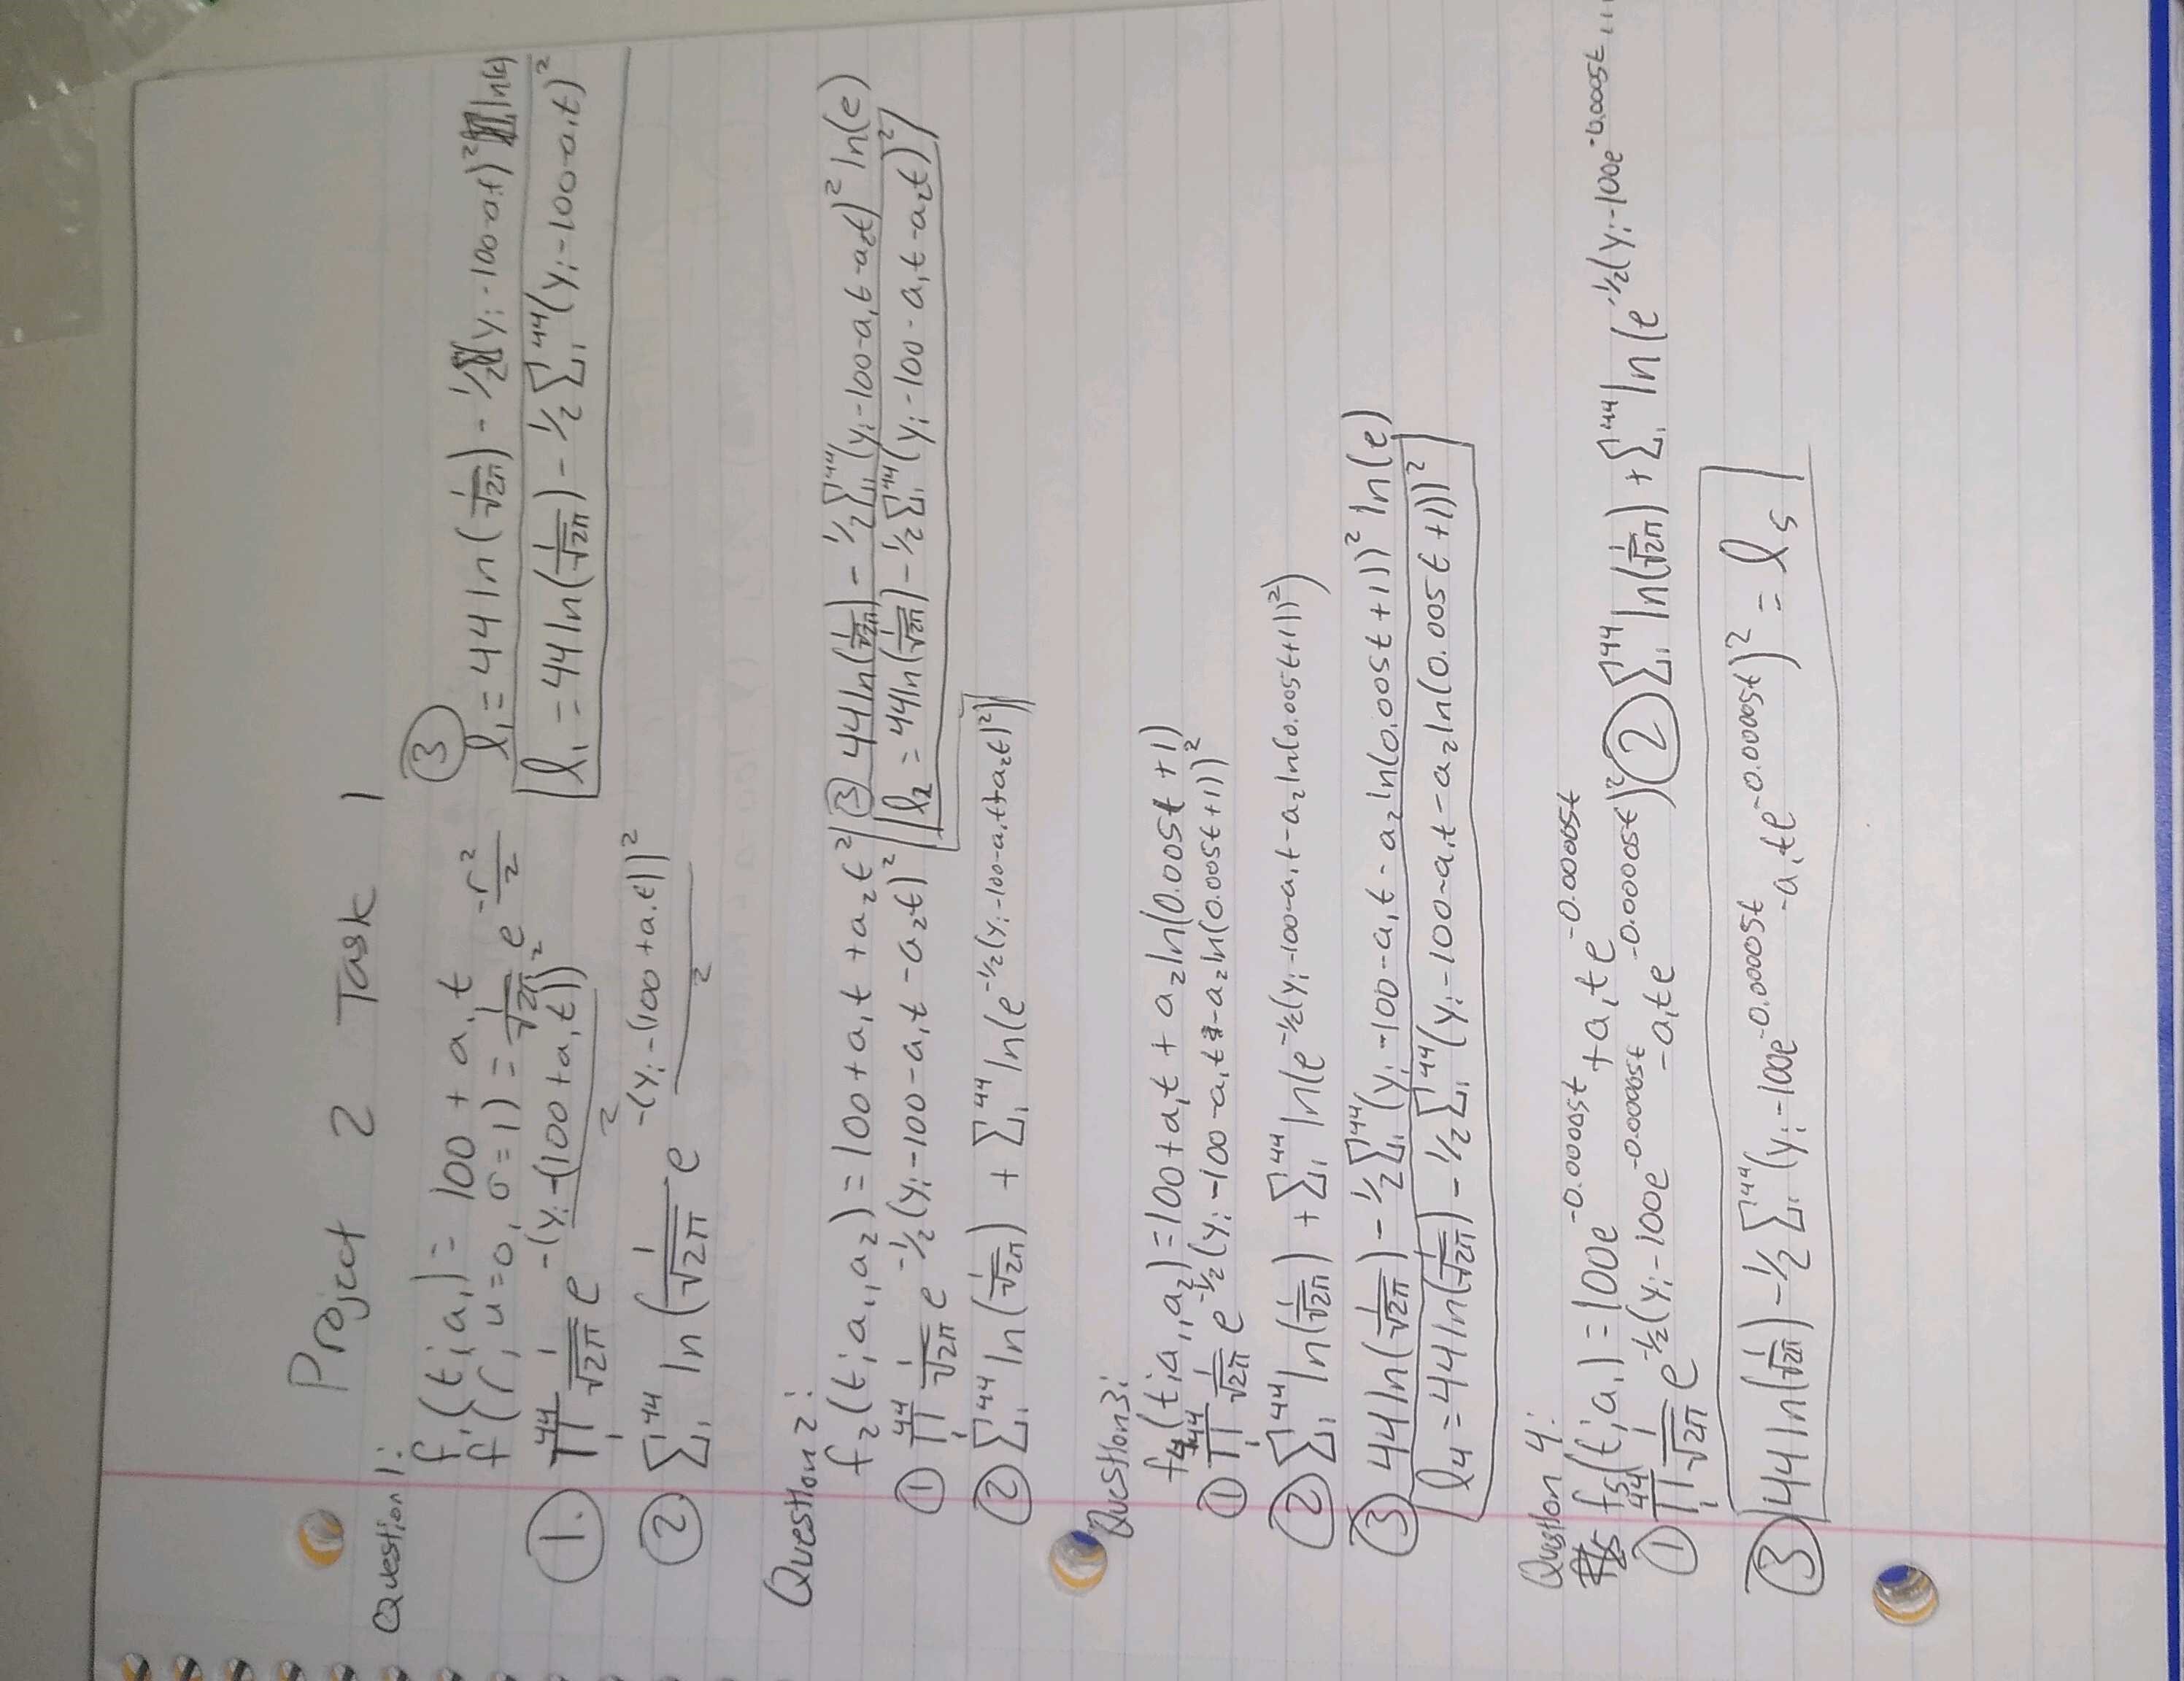 Project 2 Task 1
Question 1:
f₁(t; a₁) = 100 + a₁t
f(r, u=0, σ=1) = 1/√2π e^(-r²/2)
① ∏₁⁴⁴ 1/√2π e^(-(yᵢ-(100+a₁t))²/2)
② ∑₁⁴⁴ ln(1/√2π e^(-(yᵢ-(100+a₁t))²/2)
③
l₁ = 44 ln(1/√2π) - 1/2 (yᵢ-100-a₁t)² ln(e)
l₁ = 44 ln(1/√2π) - 1/2 ∑₁⁴⁴ (yᵢ-100-a₁t)²
Question 2:
f₂(t; a₁, a₂) = 100 + a₁t + a₂t²
① ∏₁⁴⁴ 1/√2π e^(-1/2(yᵢ-100-a₁t-a₂t)²)
② ∑₁⁴⁴ ln(1/√2π) + ∑₁⁴⁴ ln(e^(-1/2(yᵢ-100-a₁t+a₂t)²)
③ 44 ln(1/√2π) - 1/2 ∑₁⁴⁴ (yᵢ-100-a₁t-a₂t)² ln(e)
l₂ = 44 ln(1/√2π) - 1/2 ∑₁⁴⁴ (yᵢ-100-a₁t-a₂t)²
Question 3:
f₄(t; a₁, a₂) = 100 + a₁t + a₂ ln(0.005t+1)
① ∏₁⁴⁴ 1/√2π e^(-1/2(yᵢ-100-a₁t-a₂ln(0.005t+1))²)
② ∑₁⁴⁴ ln(1/√2π) + ∑₁⁴⁴ ln(e^(-1/2(yᵢ-100-a₁t-a₂ln(0.005t+1))²)
③ 44 ln(1/√2π) - 1/2 ∑₁⁴⁴ (yᵢ-100-a₁t-a₂ln(0.005t+1))² ln(e)
l₄ = 44 ln(1/√2π) - 1/2 ∑₁⁴⁴ (yᵢ-100-a₁t-a₂ln(0.005t+1))²
Question 4:
f₅(t; a₁) = 100e^(-0.00005t) + a₁te^(-0.00005t)
① ∏₁⁴⁴ 1/√2π e^(-1/2(yᵢ-100e^(-0.00005t) - a₁te^(-0.00005t))²)
② ∑₁⁴⁴ ln(1/√2π) + ∑₁⁴⁴ ln(e^(-1/2(yᵢ-100e^(-0.0005t...
③ 44 ln(1/√2π) - 1/2 ∑₁⁴⁴ (yᵢ-100e^(-0.00005t) - a₁te^(-0.00005t))² = l₅